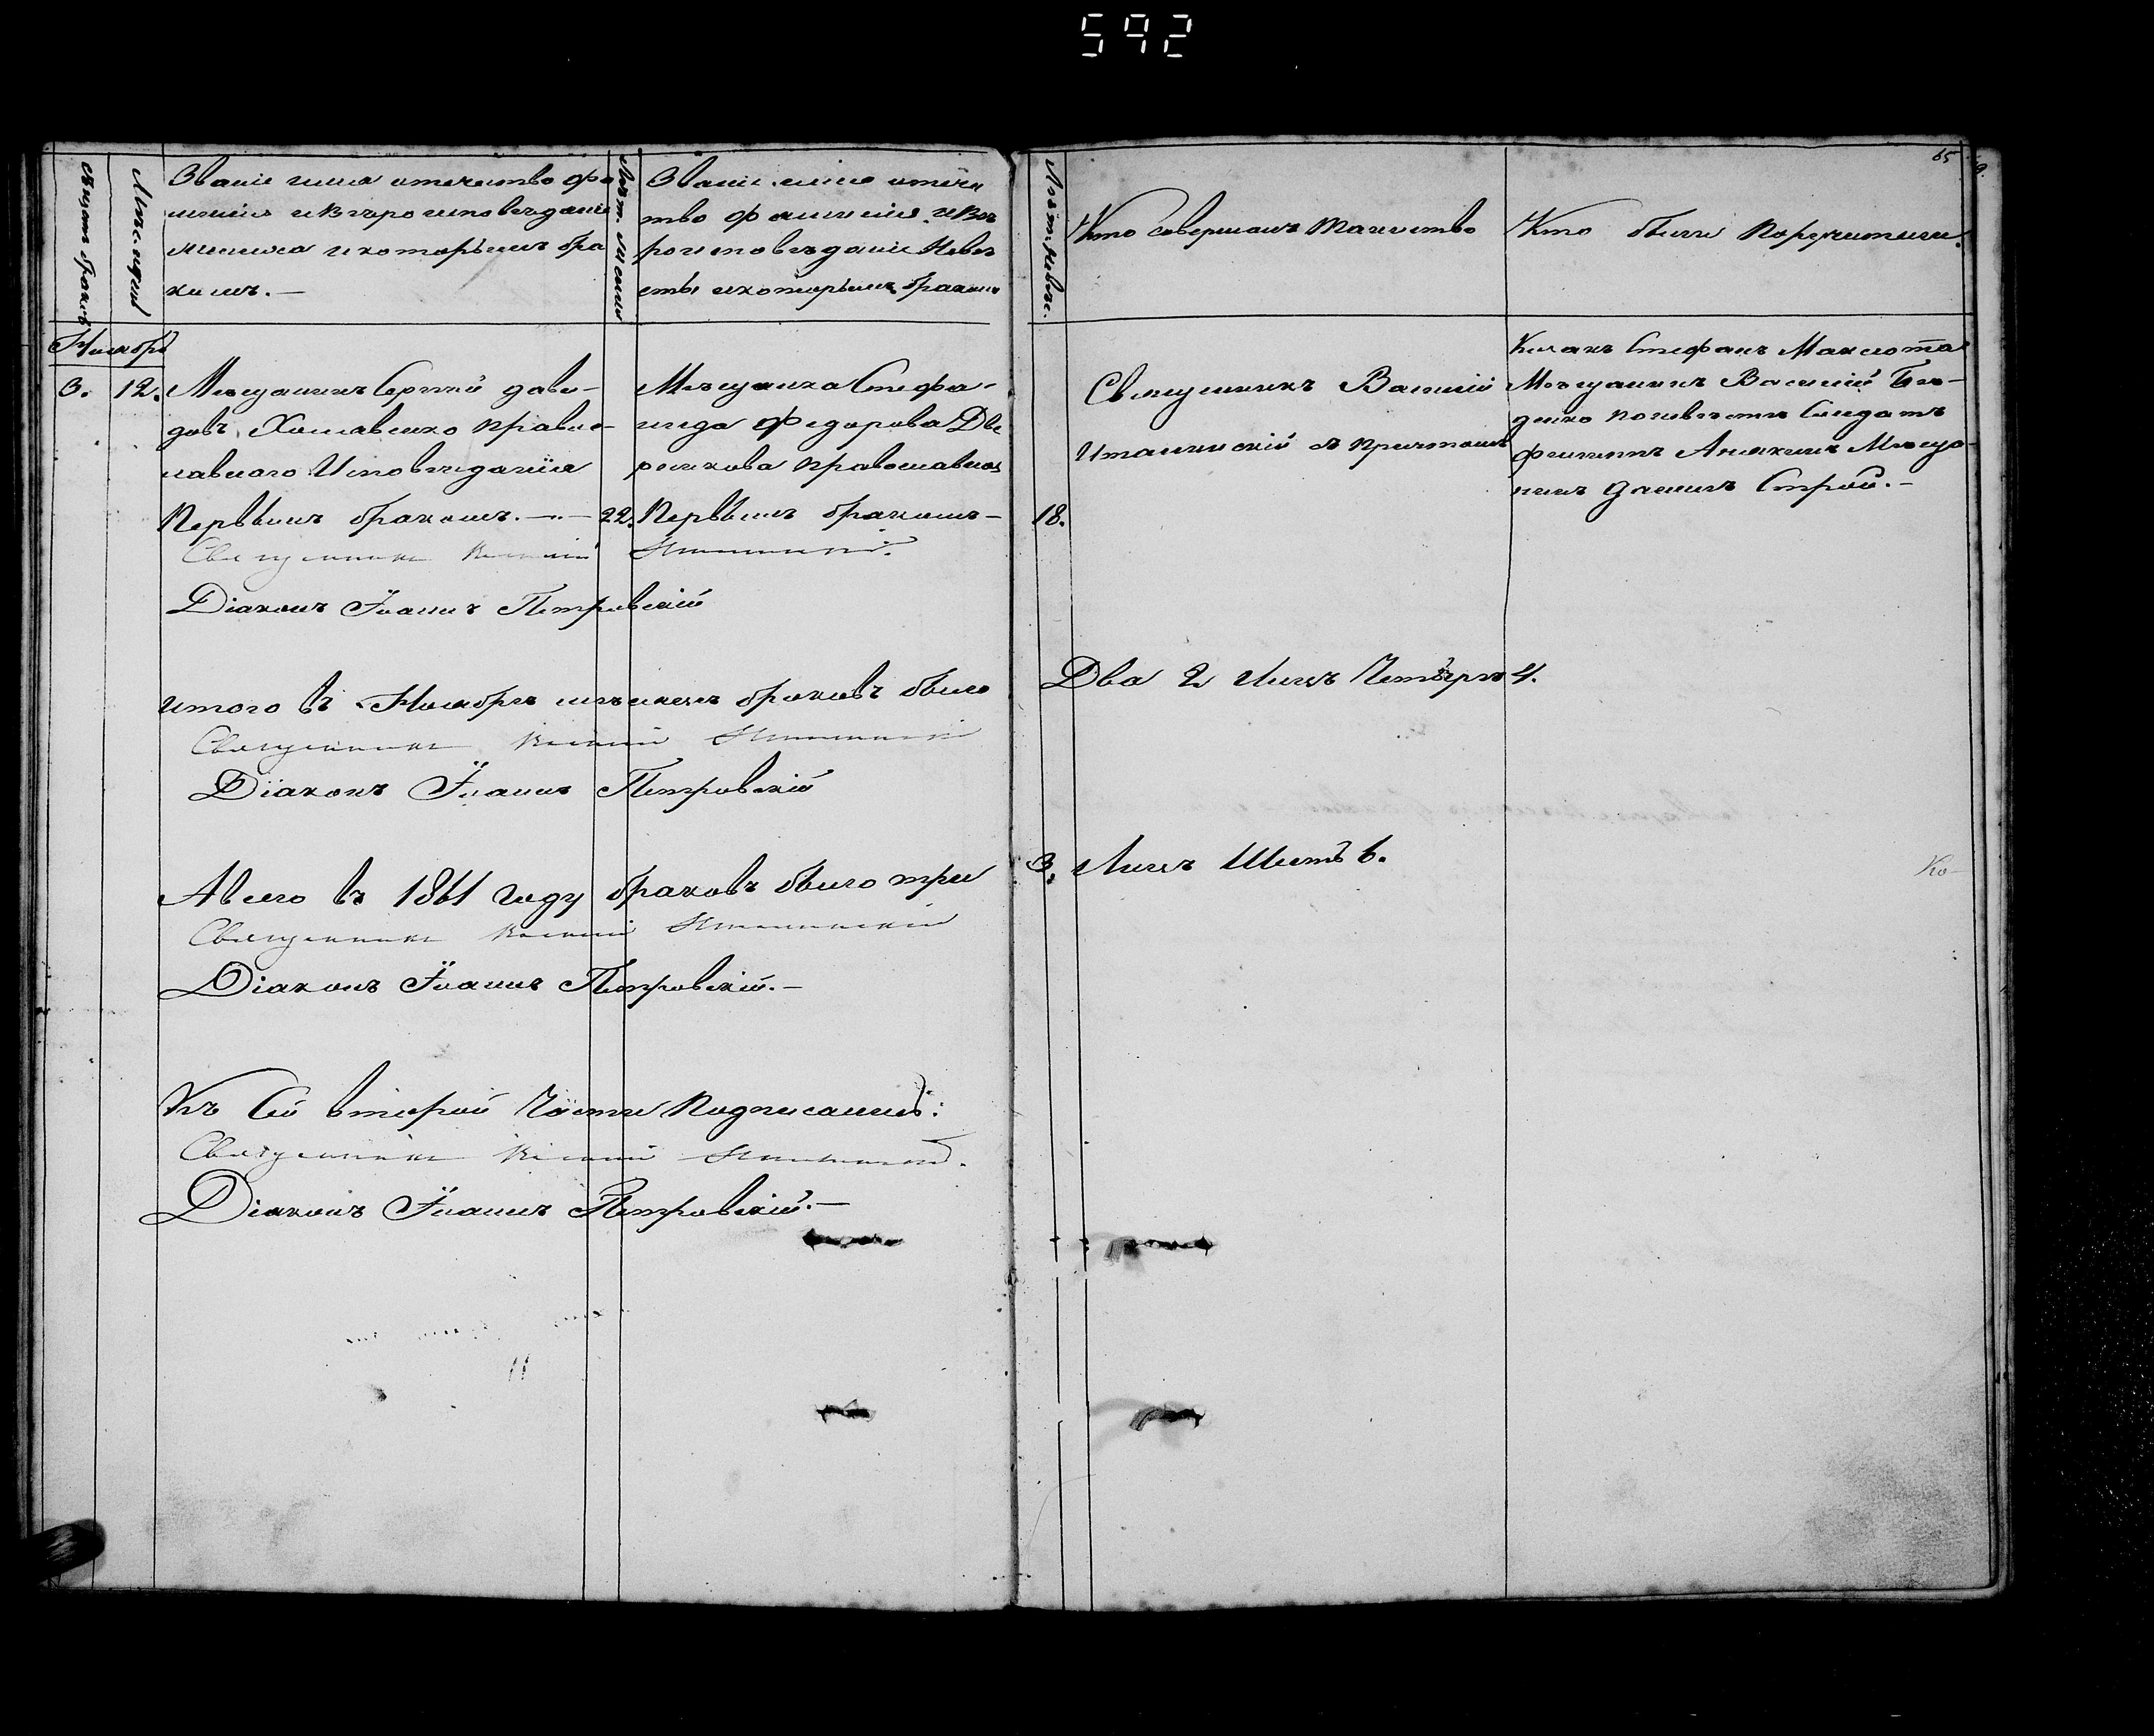 592
65
Счетъ браковъ
Мѣс. и день
Званіе имя отечество фа
миліи и Вѣроисповѣданіе
жениха и которымъ бра
комъ.—
Лѣт. жених
Званіе имя отече
тво фамилія и Вѣ
роисповѣданіе Невѣ
сты икоторымъ бракомъ
Лѣт. невѣс.
Кто Совершалъ Таинство
Кто были Поручители.
Ноябрь
3. 12. Мѣщанинъ Сергѣй Дави-
довъ Православ-
лавнаго Исповѣданія
Первымъ бракомъ. — 22.
Мѣщанка Стефа-
нида Федорова
православнаго
Первымъ бракомъ —
18.
Священникъ Василій
съ причтомъ
Казакъ Стефанъ
Мѣщанинъ Василій
денко по невѣстѣ Солдатъ
Аникинъ Мѣща-
нинъ Данилъ Строй.—
Священникъ Василій
Діаконъ Іоаннъ Петровскій
итого въ Ноябрѣ мѣсяцѣ браковъ было
Два 2 Лицъ Четыре 4.
Священникъ Василій
Діаконъ Іоаннъ Петровскій
А всего въ 1861 году браковъ было три
3. Лицъ Шесть 6.
Ко
Священникъ Василій
Діаконъ Іоаннъ Петровскій.—
Къ Сей второй Части Подписались:
Священникъ Василій
Діаконъ Іоаннъ Петровскій.—